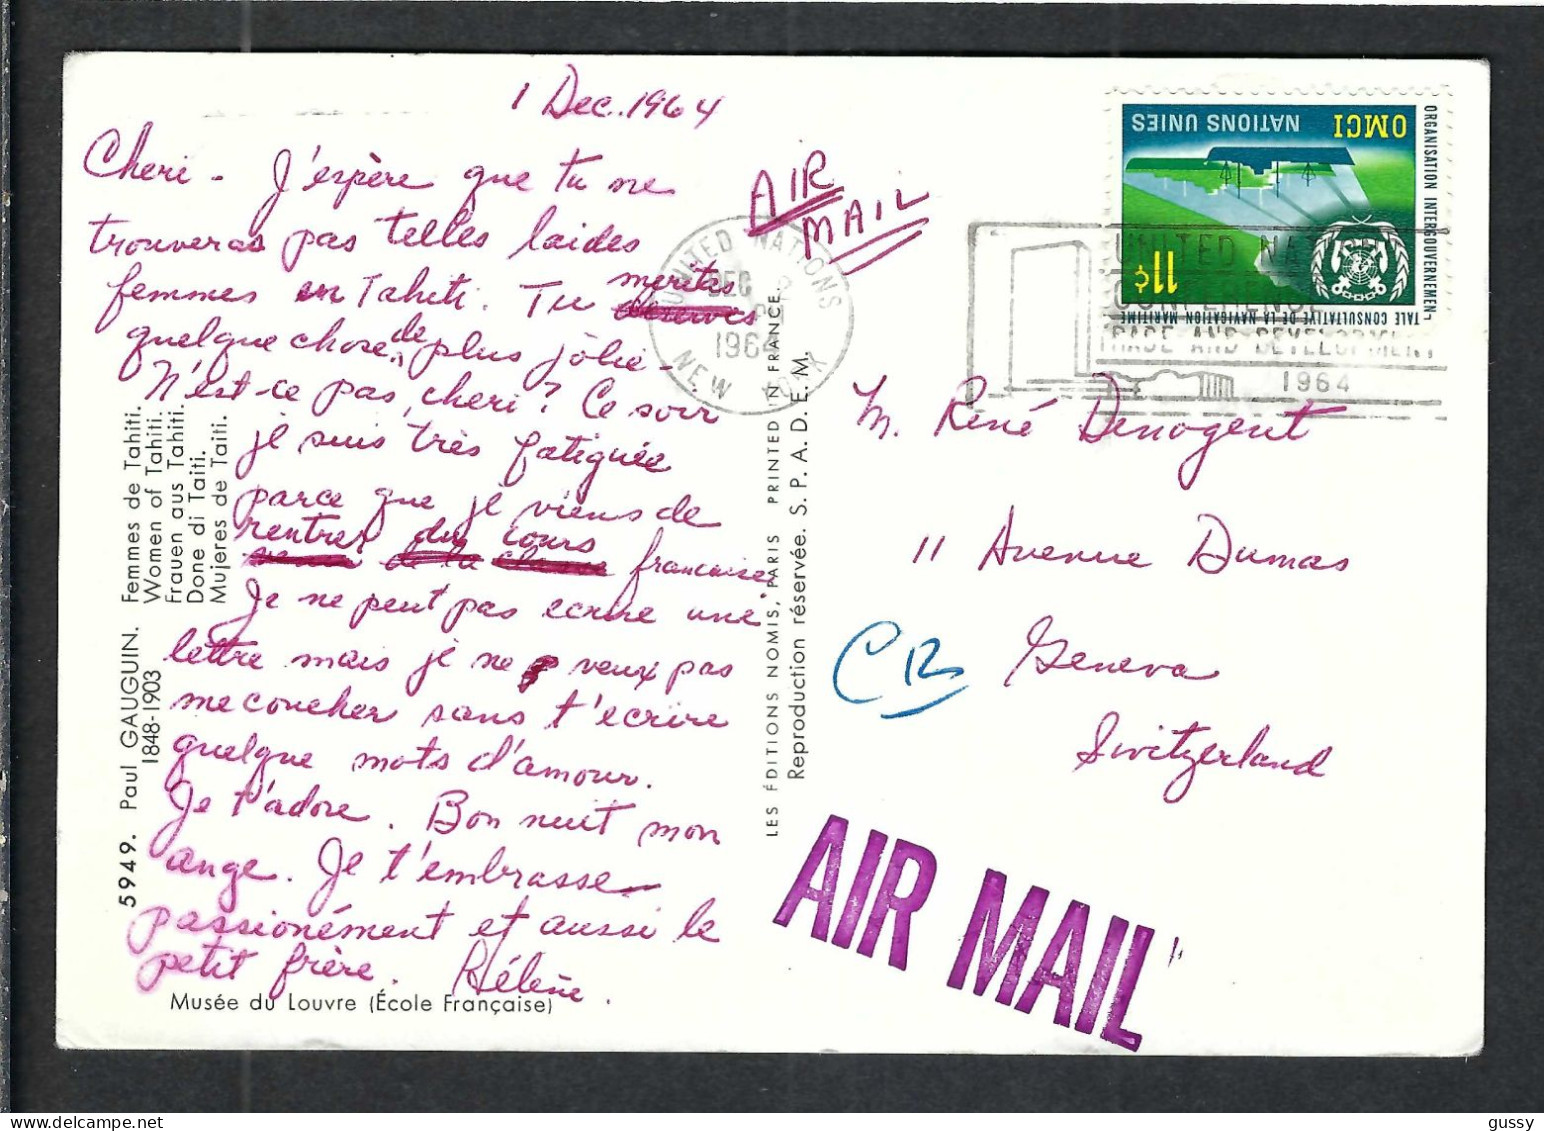 1 Dec. 1964
Cheri - J'espère que tu ne
trouveras pas telles laides
femmes en Tahiti. Tu merites
quelque chose de plus jolie -
N'est-ce pas, cheri? Ce soir
je suis très fatiguée
parce que je viens de
rentrer du cours
francaise
Je ne peut pas ecrire une
lettre mais je ne veux pas
me coucher sans t'ecrire
quelque mots d'amour.
Je t'adore. Bon nuit mon
ange. Je t'embrasse
passionément et aussi le
petit frère. Hélène.
5949. Paul GAUGUIN.
1848-1903
Femmes de Tahiti.
Women of Tahiti.
Frauen aus Tahiti.
Done di Taiti.
Mujeres de Taiti.
Musée du Louvre (École Française)
LES ÉDITIONS NOMIS, PARIS PRINTED IN FRANCE.
Reproduction réservée. S. P. A. D. E. M.
AIR
MAIL
UNITED NATIONS
DEC
1964
NEW YORK
UNITED NATIONS
CONFERENCE
TRADE AND DEVELOPMENT
1964
NATIONS UNIES
OMCI
11¢
ORGANISATION INTERGOUVERNEMEN-
TALE CONSULTATIVE DE LA NAVIGATION MARITIME
M. René Denogent
11 Avenue Dumas
Geneva
Switzerland
CR
AIR MAIL